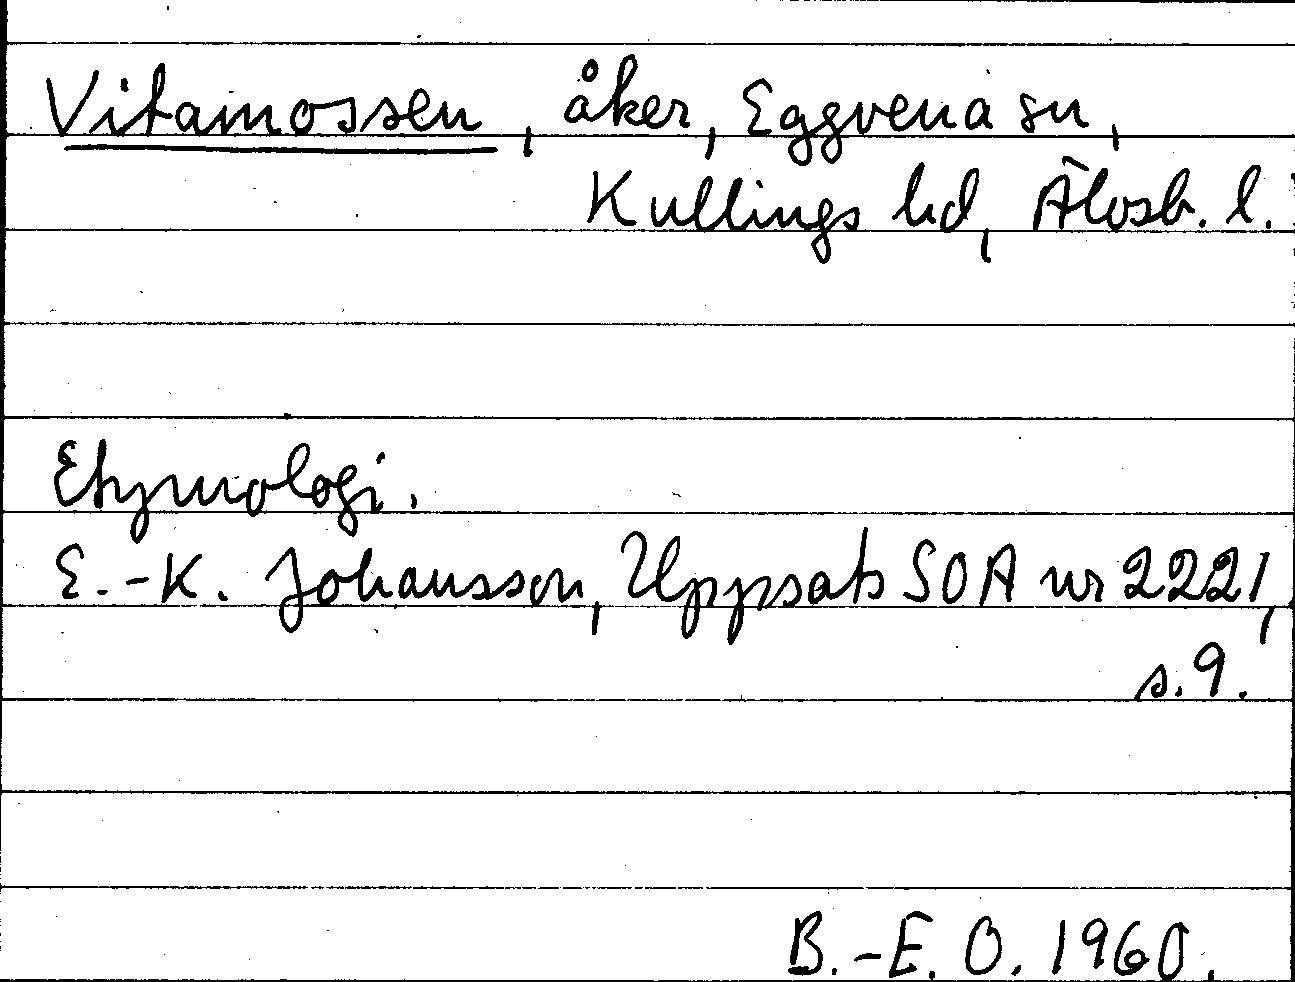 Vitamossen, åker, Eggvena sn,
Kullings hd, Älvsb. l.
Etymologi.
E.-K. Johansson, Uppsats SOA nr 2221,
s. 9.
B.-E. O. 1960.